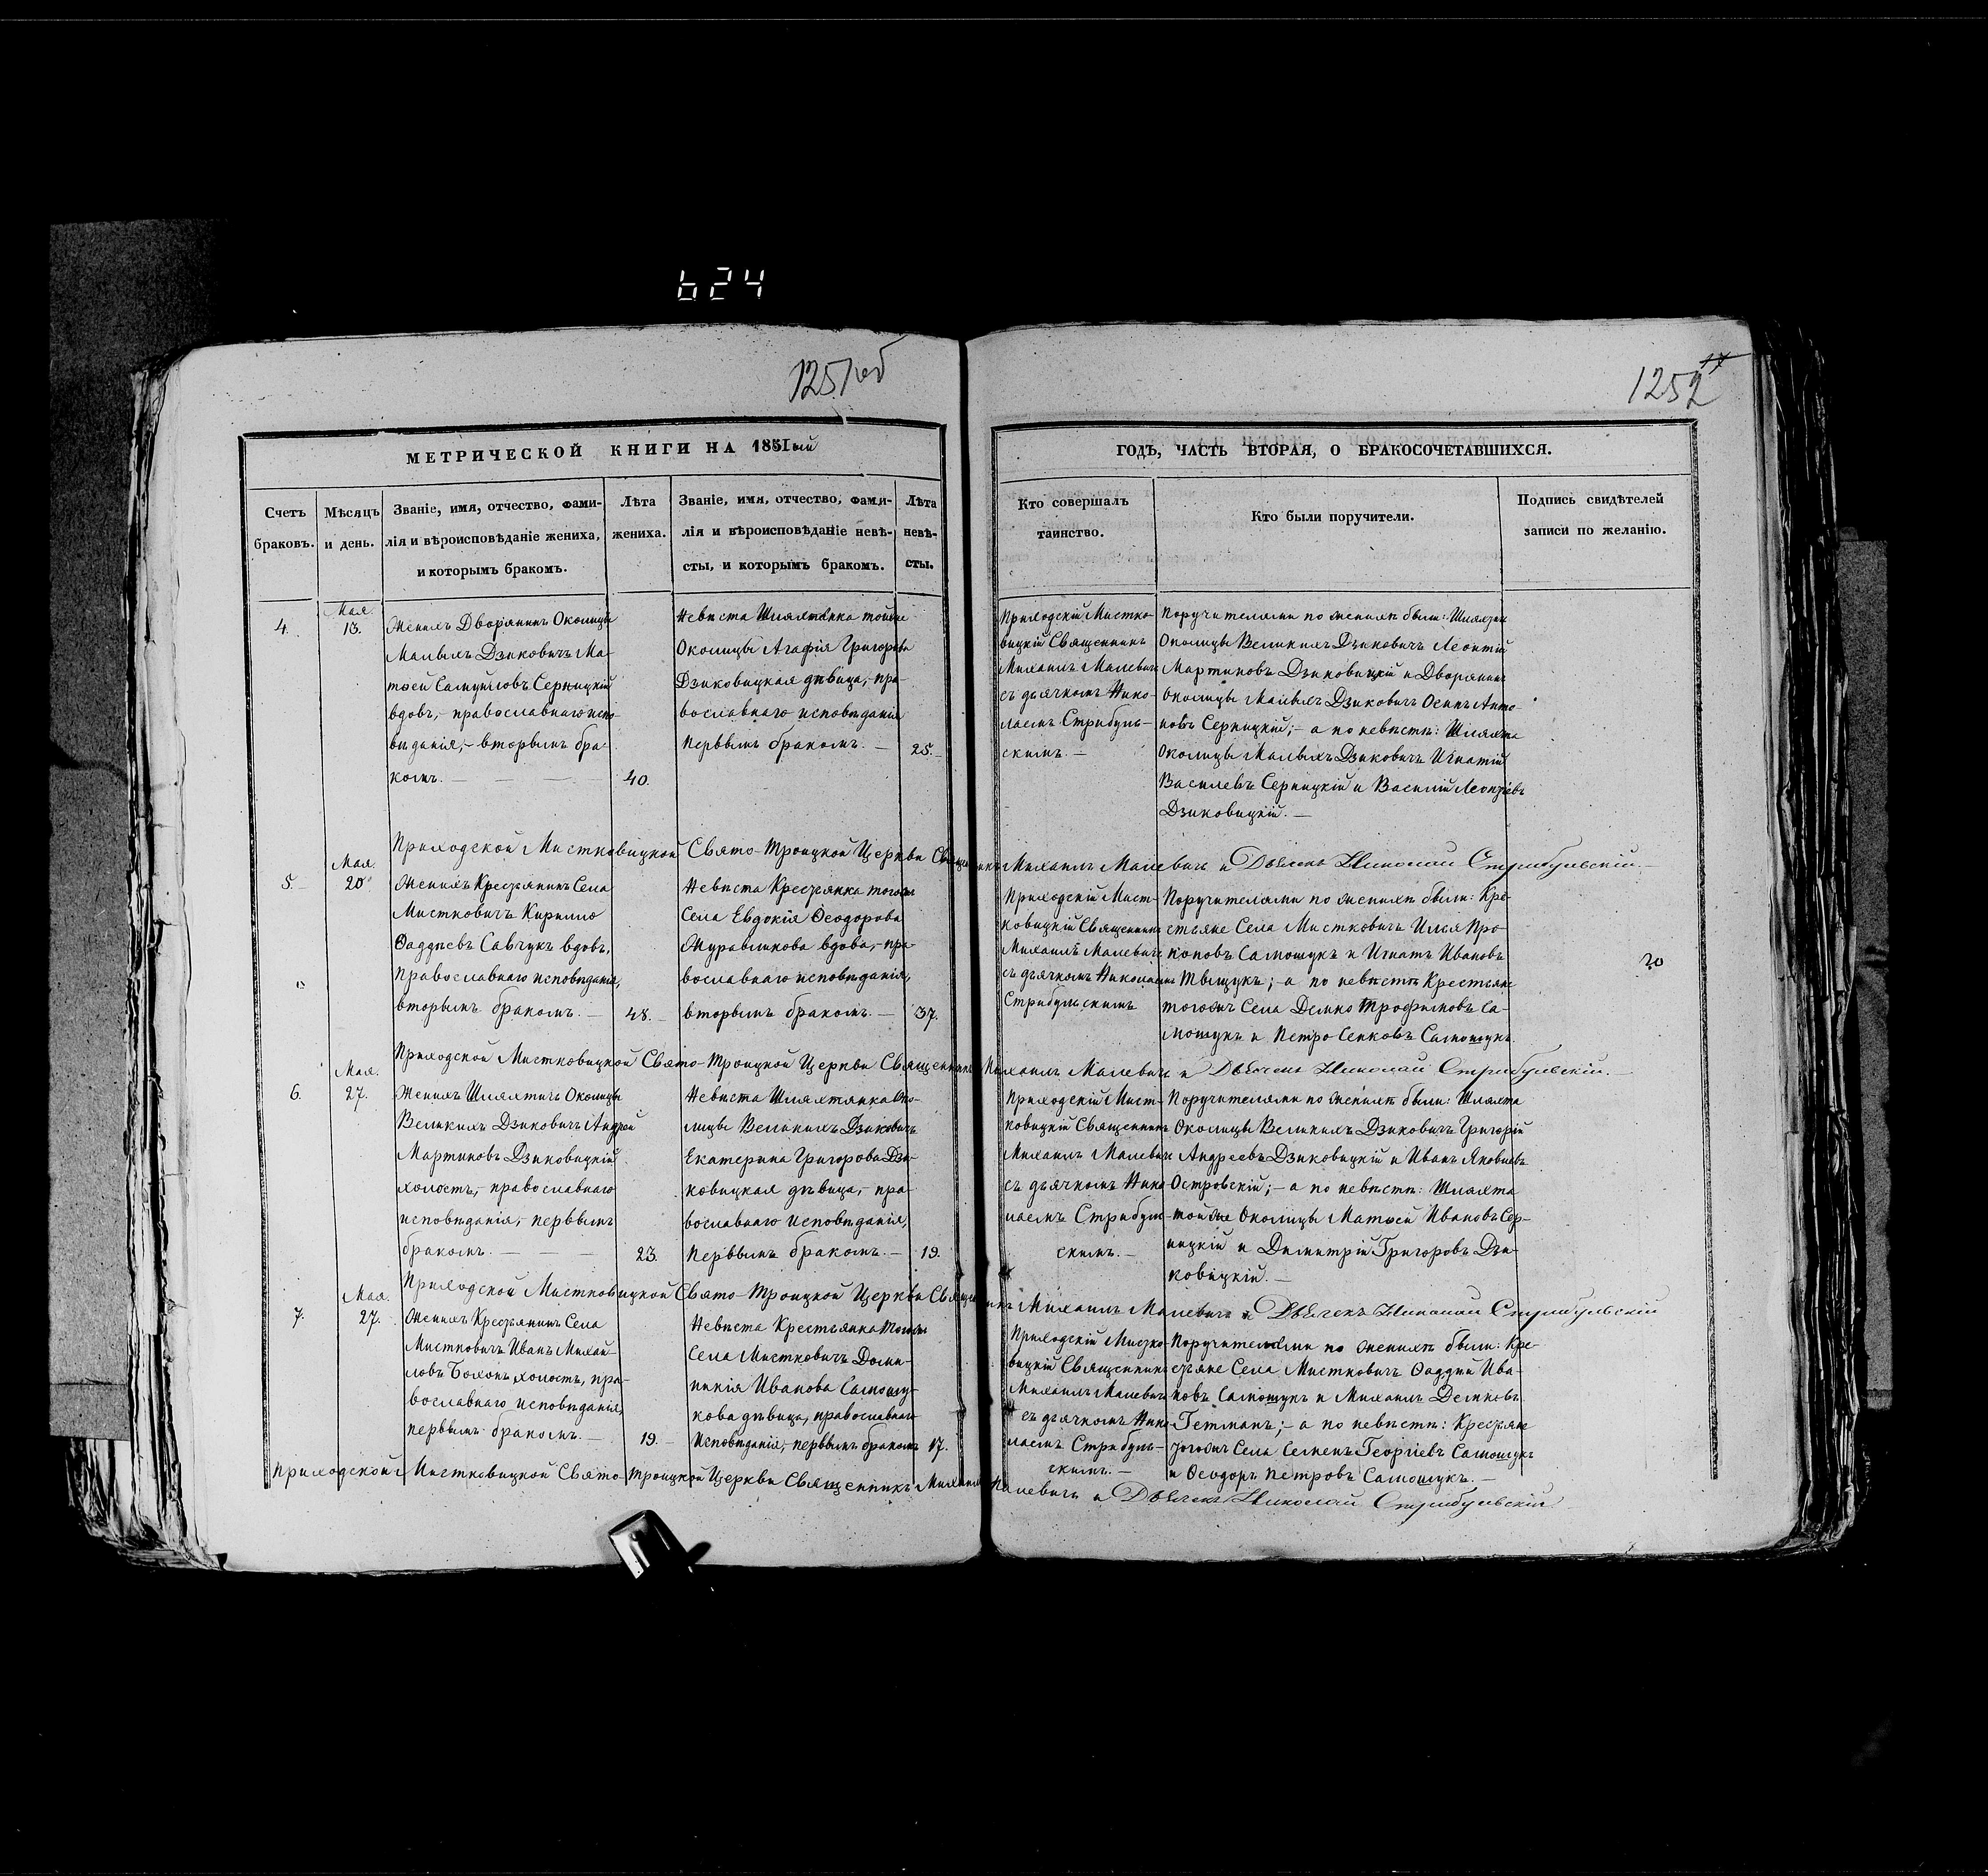 624
1251об
1252
17
МЕТРИЧЕСКОЙ КНИГИ НА 1851ый
ГОДЪ, ЧАСТЬ ВТОРАЯ, О БРАКОСОЧЕТАВШИХСЯ.
Счетъ
браковъ.
Мѣсяцъ
и день.
Званіе, имя, отчество, фами-
лія и вѣроисповѣданіе жениха,
и которымъ бракомъ.
Лѣта
жениха.
Званіе, имя, отчество, фами-
лія и вѣроисповѣданіе невѣ-
сты, и которымъ бракомъ.
Лѣта
невѣ-
сты.
Кто совершалъ
таинство.
Кто были поручители.
Подпись свидѣтелей
записи по желанію.
4.
Мая.
13.
Женихъ Дворянинъ Околицы
Малыхъ Дзиковичъ Ма-
тѳей Самуиловъ Серницкій
вдовъ,- православнаго испо-
вѣданія,- вторымъ бра-
комъ.
40.
Невѣста Шляхтянка тойже
Околицы Агафія Григорова
Дзиковицкая дѣвица,- пра-
вославнаго исповѣданія
первымъ бракомъ. —
25.
Приходскій Мистко-
вицкій Священникъ
Михаилъ Малевичъ
съ дьячкомъ Нико-
лаемъ Стрибуль-
скимъ. —
Поручителями по женихѣ были: Шляхтичъ
Околицы Великихъ Дзиковичъ Леонтій
Мартиновъ Дзиковицкій и Дворянинъ
Околицы Малыхъ Дзиковичъ Осипъ Анто-
новъ Серницкій; – а по невѣстѣ: Шляхта
Околицы Малыхъ Дзиковичъ Игнатій
Василевъ Серницкій и Василій Леонтіевъ
Дзиковицкій. —
Приходской Мистковицкой Свято-Троицкой Церкви Священникъ Михаилъ Малевичъ и Дьячекъ Николай Стрибульскій.
5.
Мая.
20.
Женихъ Крестьянинъ Села
Мистковичъ Кирилло
Ѳаддѣевъ Савчукъ вдовъ,
православнаго исповѣданія,
вторымъ бракомъ. —
48.
Невѣста Крестьянка тогожъ
Села Евдокія Ѳеодорова
Журавликова вдова,- пра-
вославнаго исповѣданія,
вторымъ бракомъ. —
37.
Приходскій Мист-
ковицкій Священникъ
Михаилъ Малевичъ
съ дьячкомъ Николаемъ
Стрибульскимъ
Поручителями по женихѣ были: Кре-
стьяне Села Мистковичъ Илья Про-
коповъ Самошукъ и Игнатъ Ивановъ
Тыщукъ; – а по невѣстѣ Крестьяне
тогожъ Села Демко Трофимовъ Са-
мошукъ и Петро Сенковъ Самошукъ.
20
Приходской Мистковицкой Свято-Троицкой Церкви Священникъ Михаилъ Малевичъ и Дьячекъ Николай Стрибульскій.
6.
Мая.
27.
Женихъ Шляхтичъ Околицы
Великихъ Дзиковичъ Андрей
Мартиновъ Дзиковицкій
холостъ,- православнаго
исповѣданія, первымъ
бракомъ.
23.
Невѣста Шляхтянка Око-
лицы Великихъ Дзиковичъ
Екатерина Григорова Дзи-
ковицкая дѣвица,- пра-
вославнаго исповѣданія,
первымъ бракомъ. —
19.
Приходскій Мист-
ковицкій Священникъ
Михаилъ Малевичъ
съ дьячкомъ Нико-
лаемъ Стрибуль-
скимъ. —
Поручителями по женихѣ были: Шляхта
Околицы Великихъ Дзиковичъ Григорій
Андреевъ Дзиковицкій и Иванъ Яковлевъ
Островскій; – а по невѣстѣ: Шляхта
той же Околицы Матѳей Ивановъ Сер-
ницкій и Димитрій Григоровъ Дзи-
ковицкій. —
Приходской Мистковицкой Свято-Троицкой Церкви Священникъ Михаилъ Малевичъ и Дьячекъ Николай Стрибульскій
7.
Мая.
27.
Женихъ Крестьянинъ Села
Мистковичъ Иванъ Михай-
ловъ Бохонъ, холостъ, пра-
вославнаго исповѣданія,
первымъ бракомъ. —
19.
Невѣста Крестьянка тогожъ
Села Мистковичъ Доми-
никія Иванова Самошу-
кова дѣвица, православнаго
исповѣданія,- первымъ бракомъ
17.
Приходскій Мистко-
вицкій Священникъ
Михаилъ Малевичъ
съ дьячкомъ Нико-
лаемъ Стрибуль-
скимъ. —
Поручителями по женихѣ были: Кре-
стьяне Села Мистковичъ Ѳаддѣй Ива-
новъ Самошукъ и Михаилъ Демковъ
Гетманъ; – а по невѣстѣ: Крестьяне
тогожъ Села Семенъ Георгіевъ Самошукъ
и Ѳеодоръ Петровъ Самошукъ. —
Приходской Мистковицкой Свято-Троицкой Церкви Священникъ Михаилъ Малевичъ и Дьячекъ Николай Стрибульскій